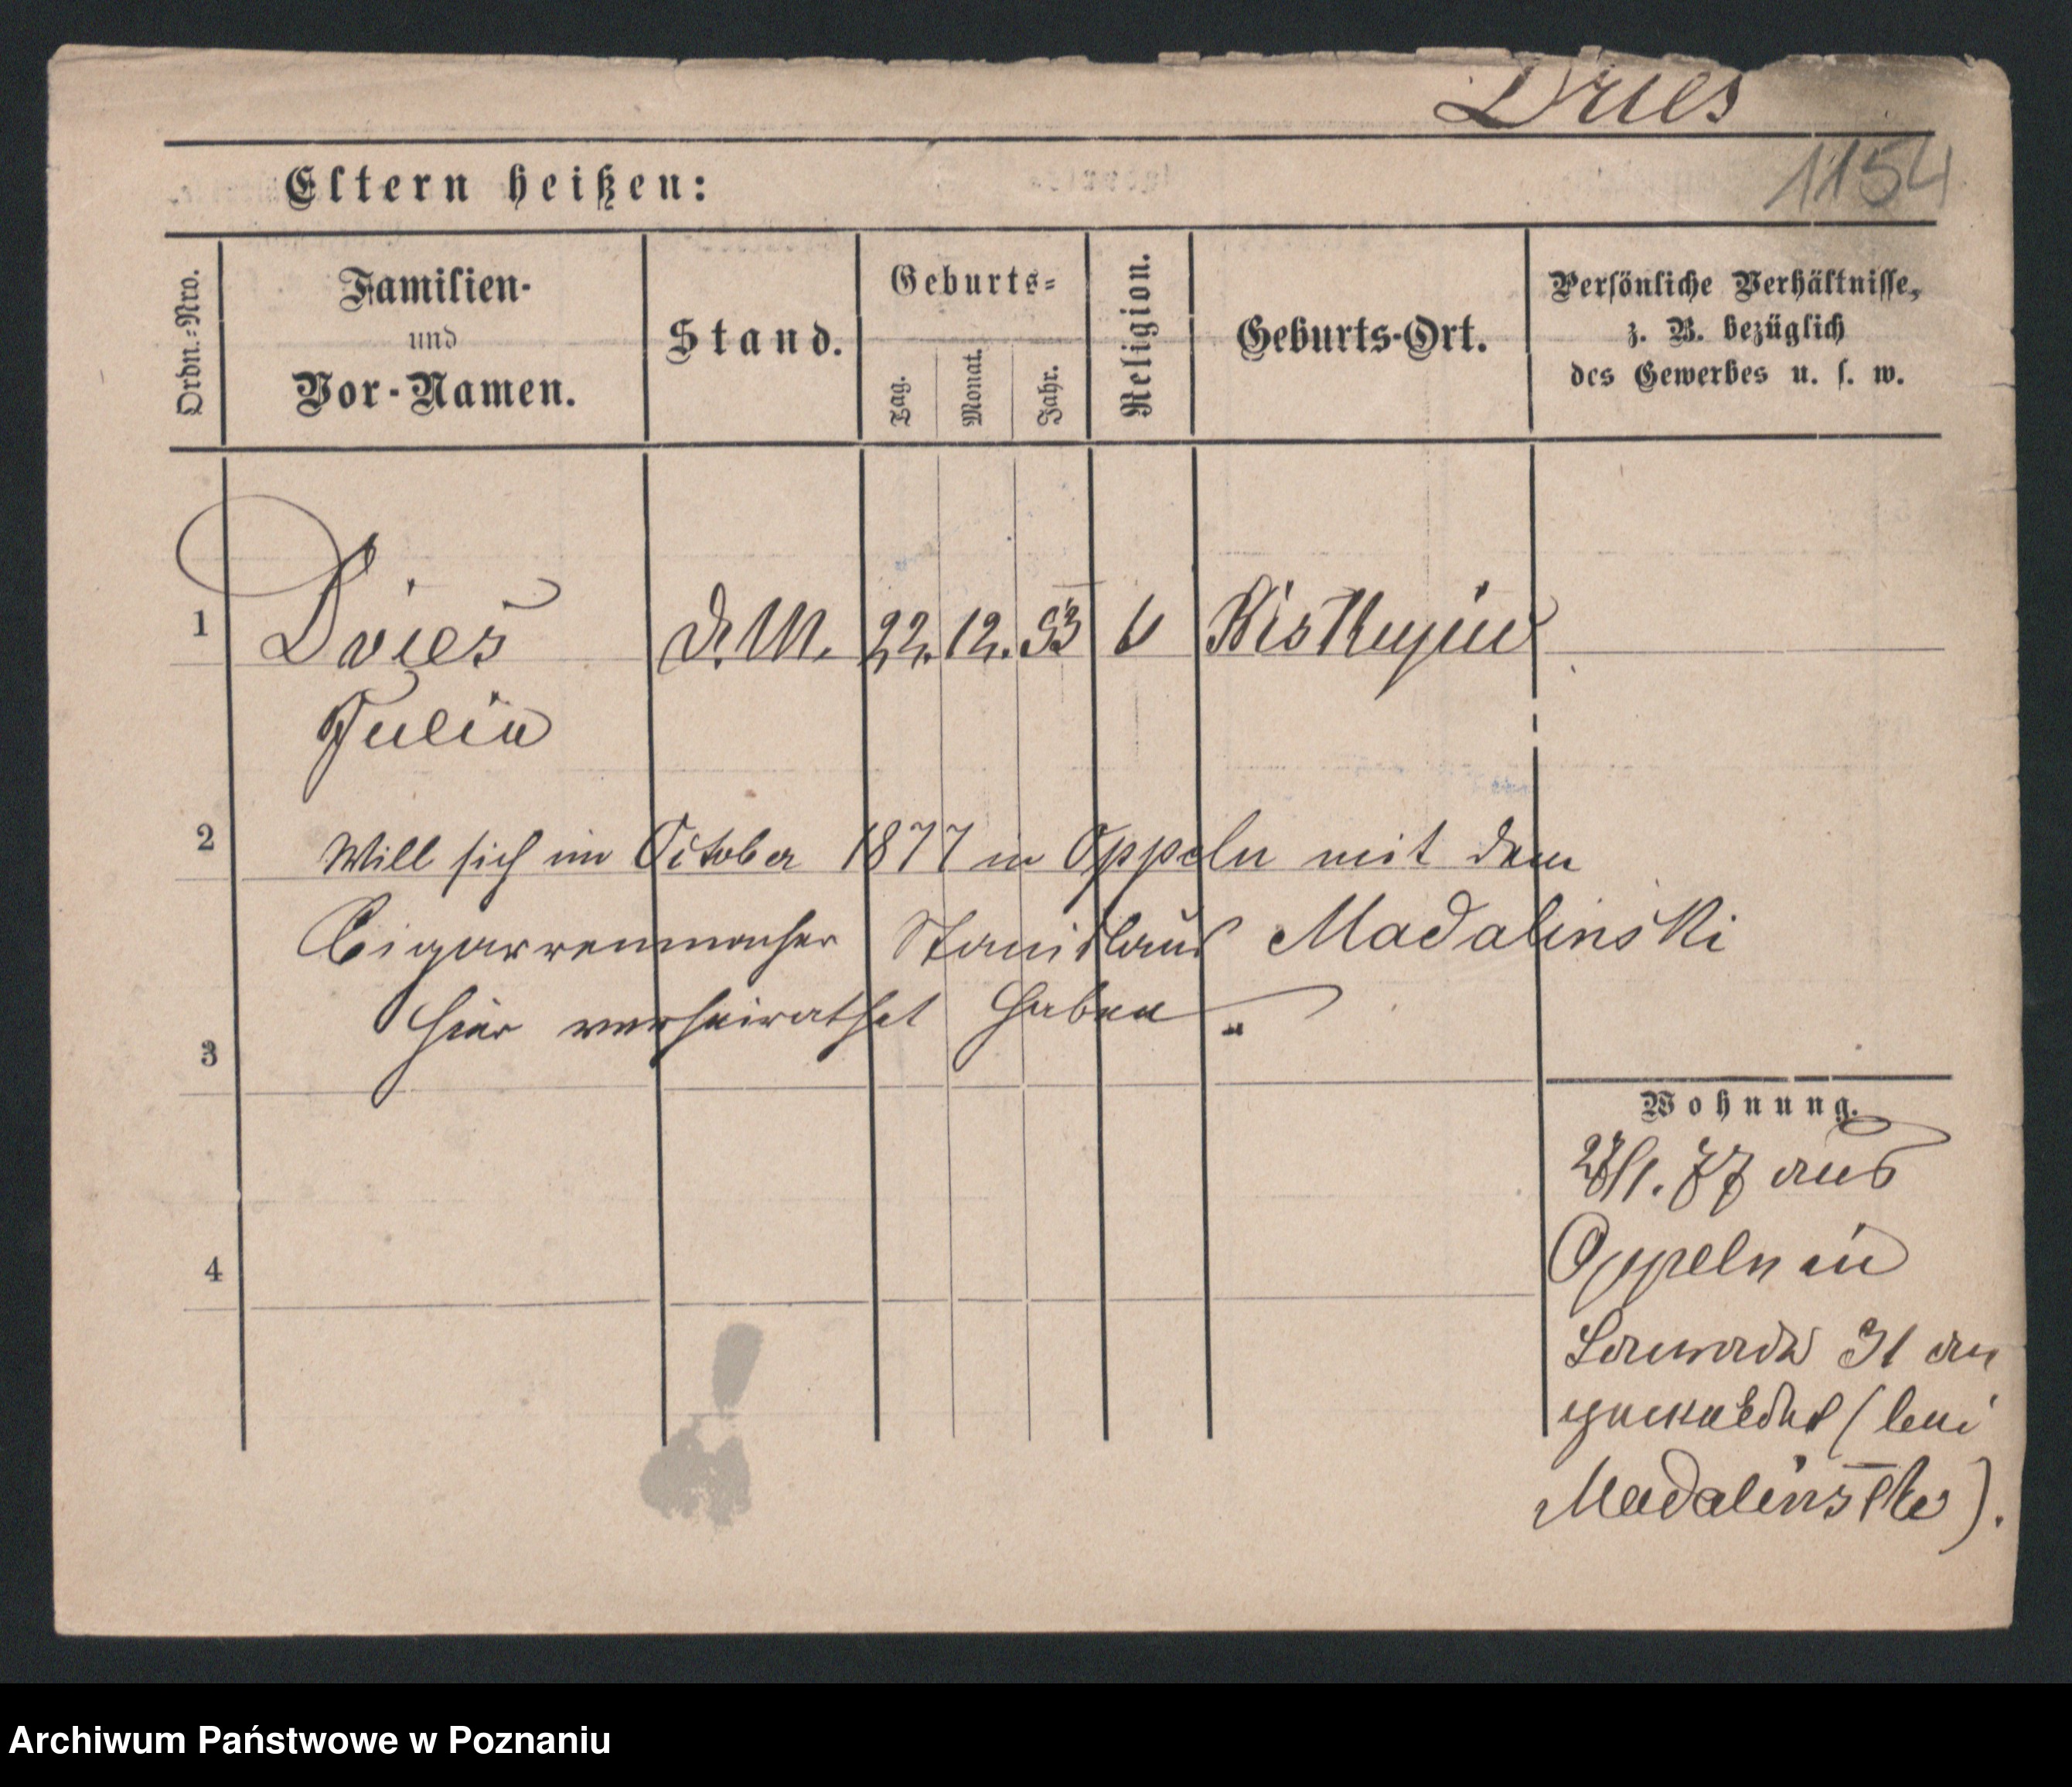 Dries
1154
Eltern heißen:
Ordn.=Nro.
Familien-
und
Vor-Namen.
Stand.
Geburts=
Tag.
Monat.
Jahr.
Religion.
Geburts-Ort.
Persönliche Verhältnisse,
z. B. bezüglich
des Gewerbes u. s. w.
1
Dries
d. M.
22. 12. 53
Julia
2
Will sich im October 1877 in Oppeln mit dem
Cigarrenmacher Stanislaus Madalinski
hier verheirathet haben.
3
Wohnung.
77 aus
4
Oppeln in
31 an
gemeldet (bei
Madalinski).
Archiwum Państwowe w Poznaniu